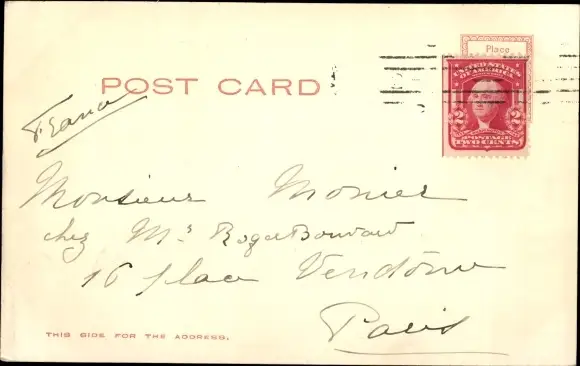 Place
UNITED STATES
OF AMERICA
2 2
POSTAGE
TWO CENTS
POST CARD
France
Monsieur Monier
chez Mr Roger Bouvard
16 place Vendôme
Paris
THIS SIDE FOR THE ADDRESS.